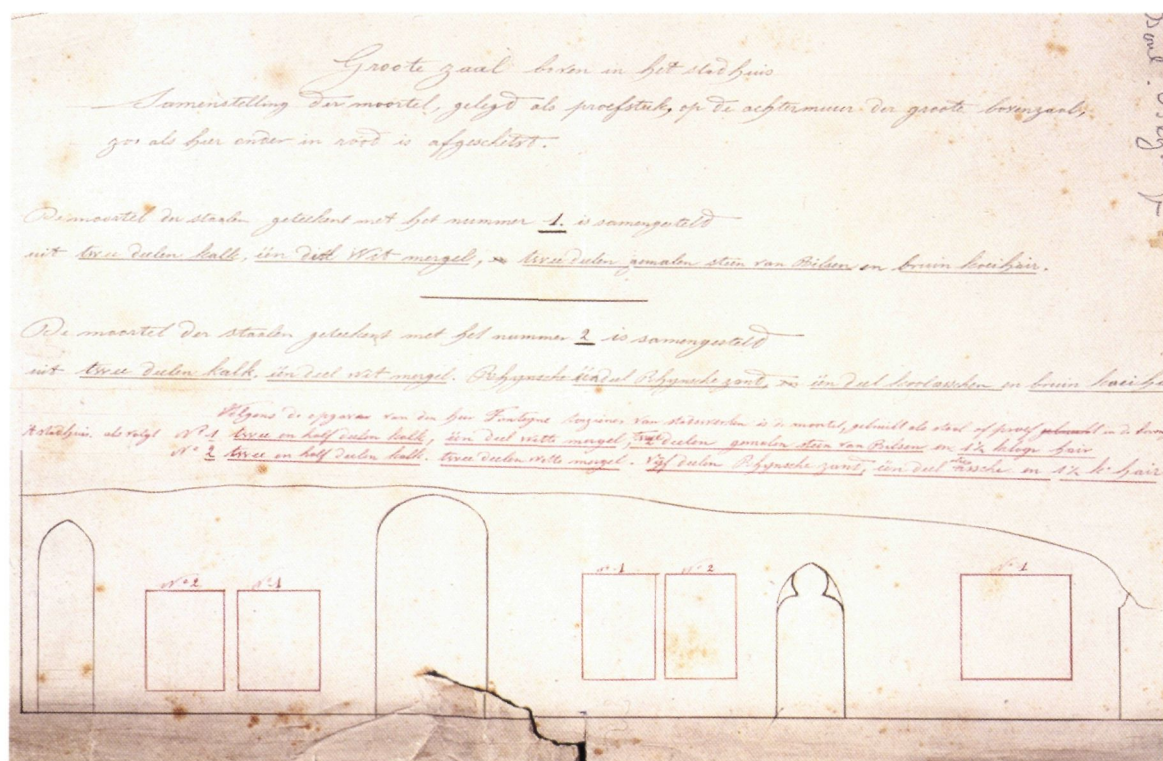 Groote zaal boven in het stadhuis
Samenstelling der moortel, gelegd als proefstuk, op de achtermuur der groote bovenzaal,
zoo als hier onder in rood is afgeschetst.
De moortel der staalen geteekent met het nummer 1. is samengesteld
uit twee deelen kalk, één deel Wit mergel, twee deelen gemalen steen van Bilsen en bruin koeihair.
De moortel der staalen geteekent met het nummer 2 is samengesteld
uit twee deelen kalk, één deel wit mergel. Rhynsche één deel Rhynsche zant, één deel en bruin koeih
Volgens de opgaven van den heer Fontayne van stadswerken is de moortel, gebruikt als staal of proef in de
't stadhuis, als volgt N° 1 twee en half deelen kalk, één deel witte mergel, twee deelen gemalen steen van Bilsen en 1½ kilogr hair
N° 2 twee en half deelen kalk. twee deelen witte mergel. vyf deelen Rhynsche zant, één deel assche en 1½ k° hair
N° 2 N° 1 N° 1 N° 2 N° 1